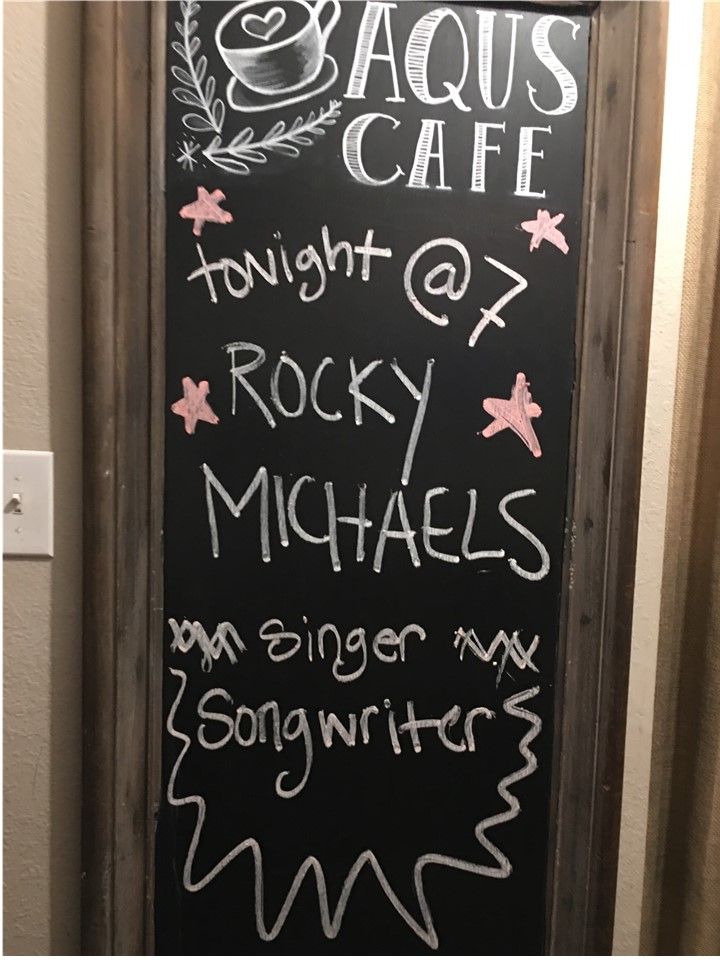 AQUS
CAFE
tonight @7
ROCKY
MICHAELS
singer
songwriter